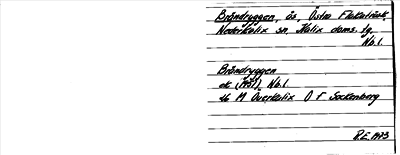 Brändryggen, ås, Östra Flakaträsk,
Nederkalix sn, Kalix doms. tg.
Nb.l.
Brändryggen
ek (1951) Nb.l.
16 M Överkalix O F Sockenberg
R.E. 1973